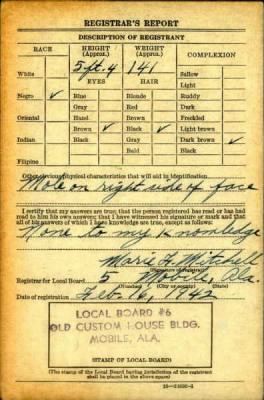 REGISTRAR'S REPORT
DESCRIPTION OF REGISTRANT
RACE HEIGHT (Approx.) WEIGHT (Approx.) COMPLEXION
5 ft. 4 141
White EYES HAIR Sallow
Light
Negro ✓ Blue Blonde Ruddy
Gray Red Dark
Oriental Hazel Brown Freckled
Brown ✓ Black ✓ Light brown
Indian Black Gray Dark brown ✓
Bald Black
Filipino
Other obvious physical characteristics that will aid in identification
Mole on right side of face
I certify that my answers are true; that the person registered has read or has had
read to him his own answers; that I have witnessed his signature or mark and that
all of his answers of which I have knowledge are true, except as follows:
None to my knowledge
Marie F. Mitchell
(Signature of registrar)
Registrar for Local Board 5 Mobile, Ala.
(Number) (City or county) (State)
Date of registration Feb. 16, 1942
LOCAL BOARD #6
OLD CUSTOM HOUSE BLDG.
MOBILE, ALA.
(STAMP OF LOCAL BOARD)
(The stamp of the Local Board having jurisdiction of the registrant
shall be placed in the above space.)